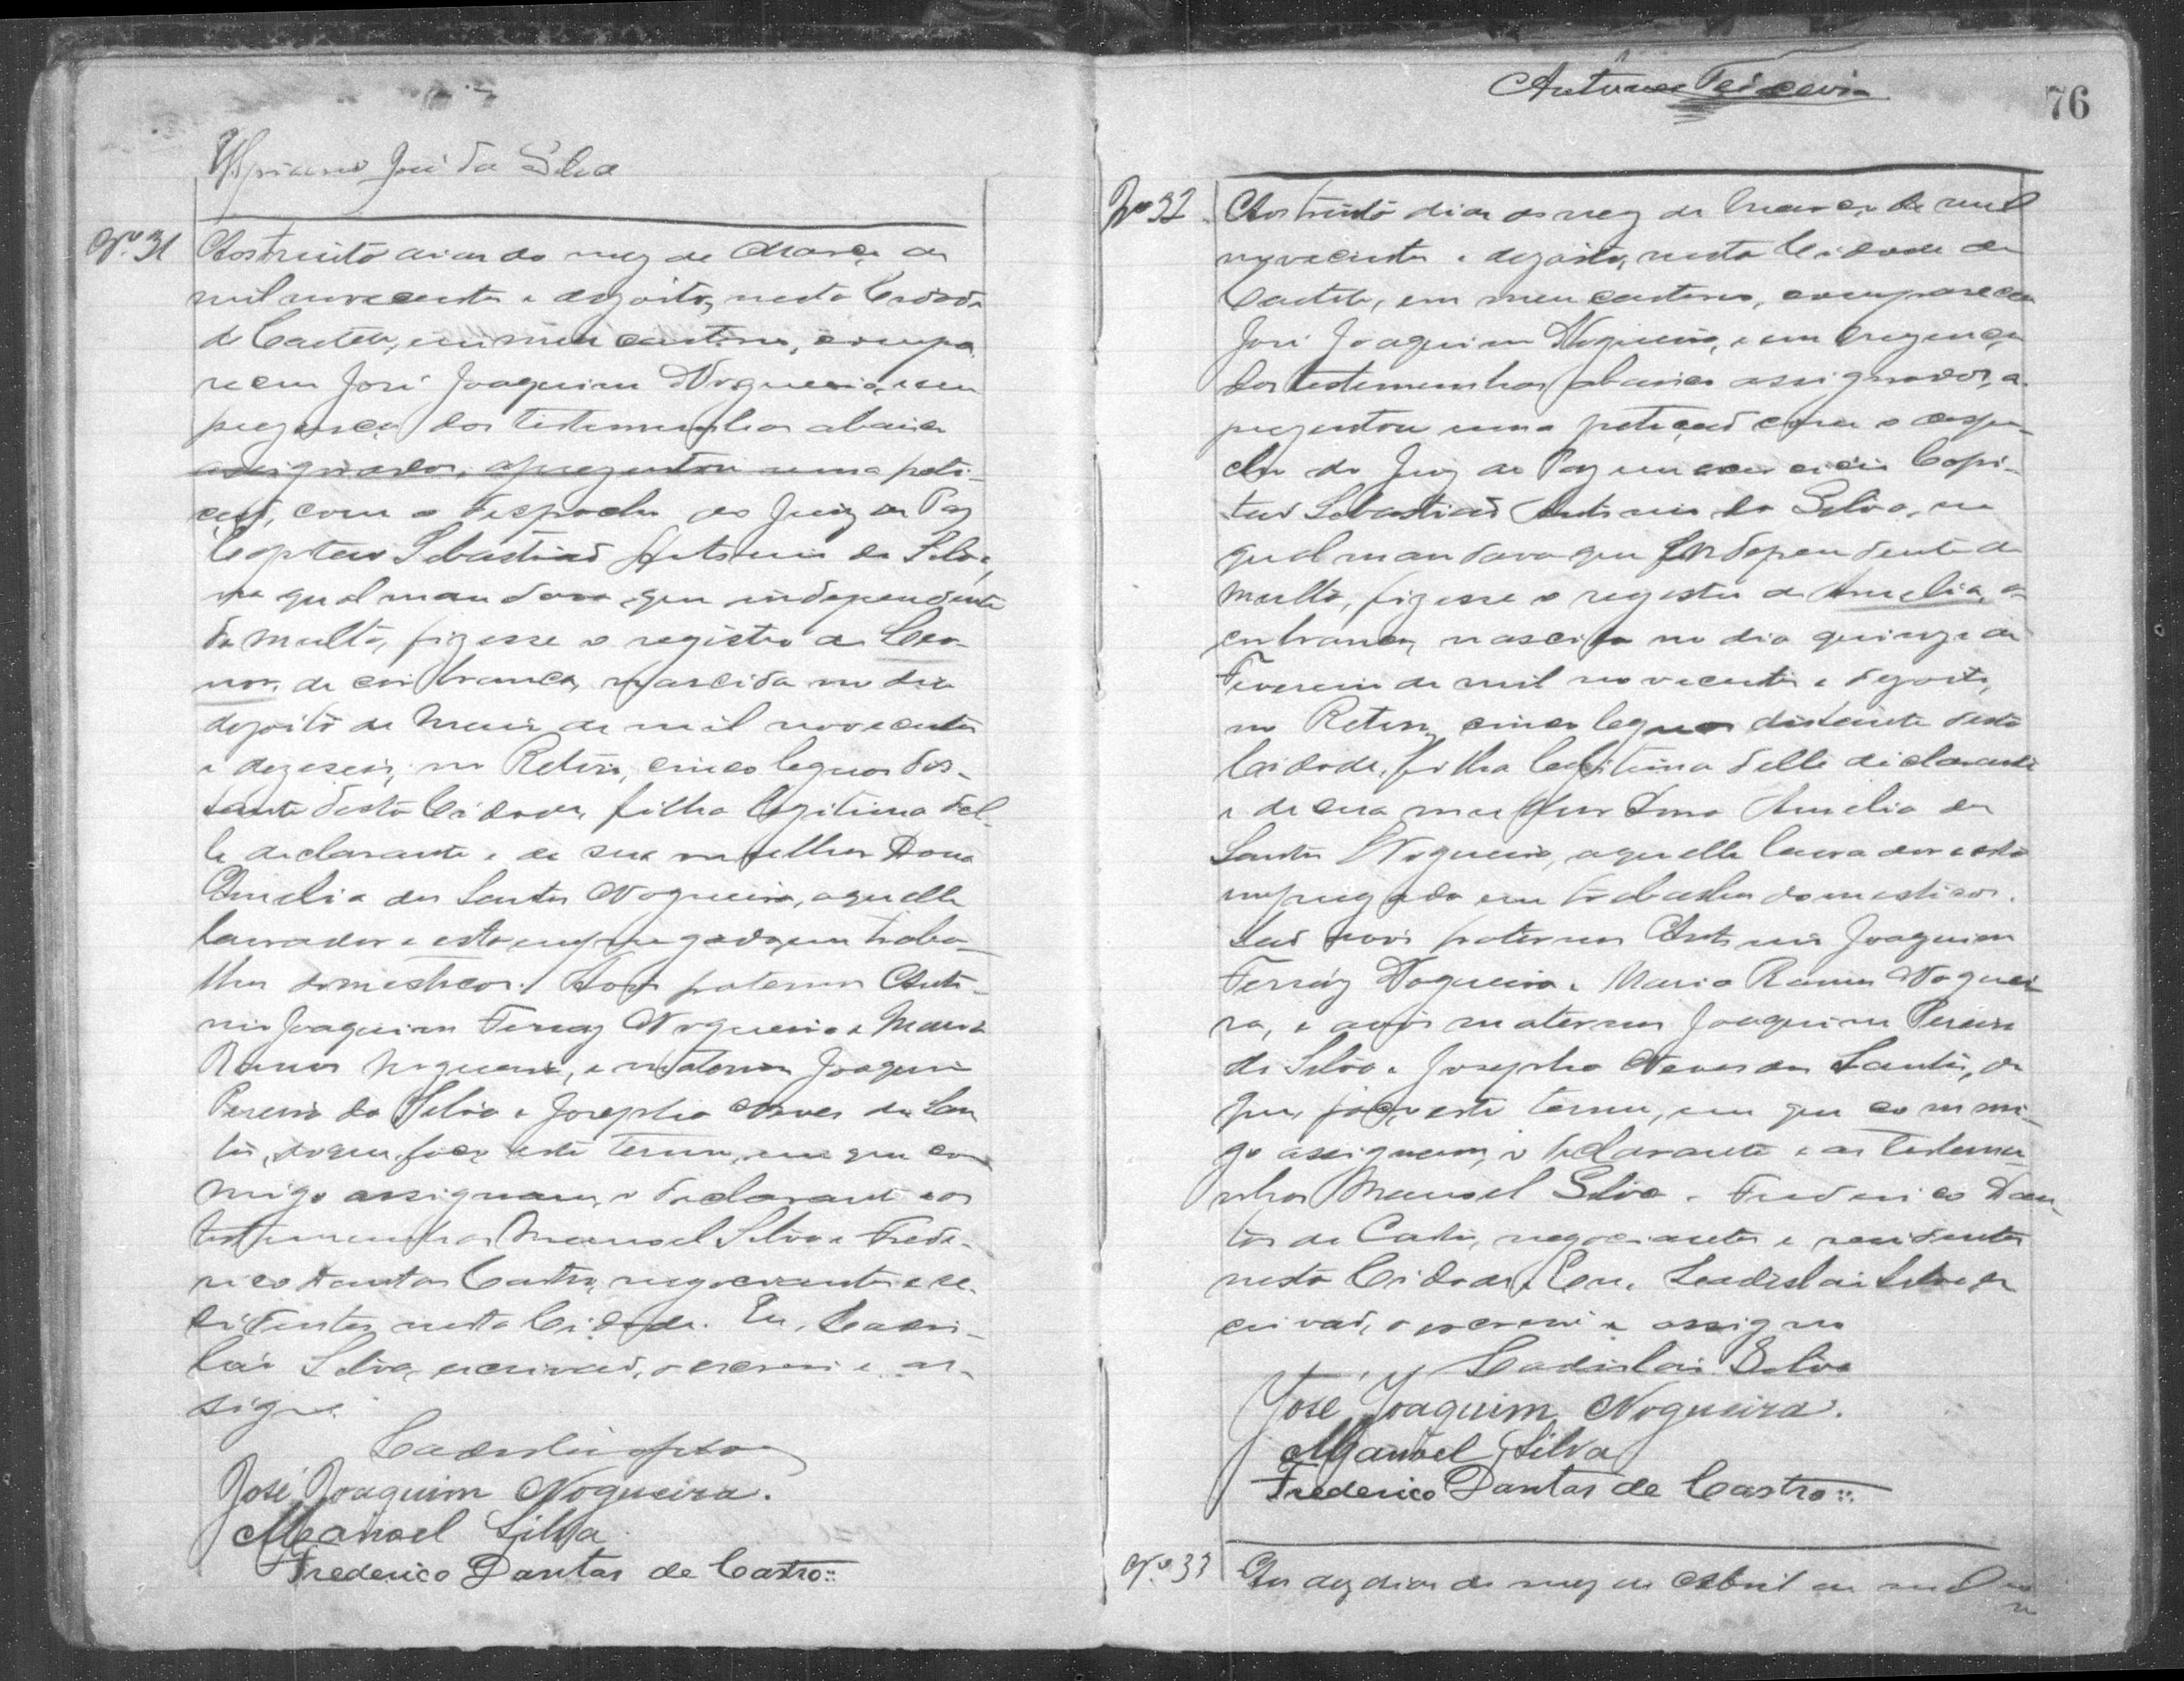 José da Silva
Nº 31 Aos trinta dias do mez de Março de
mil novecentos e dezoito, nesta Cidade
de Caeteté, em meu cartorio, compa-
receu José Joaquim Nogueira, e em
prezença das testemunhas abaixo
assignados, aprezentou uma peti-
ção, com o despacho do Juiz de Paz
Capitão Sebastião Antonio da Silva,
na qual mandava que independente
da multa, fizesse o registro de Leo-
nor, de côr branca, nascida no dia
dezoito de Maio de mil novecentos
e dezeseis, no Retiro, cinco leguas dis-
tante desta Cidade, filha legitima del-
le declarante e de sua mulher Dona
Amelia dos Santos Nogueira, aquelle
lavrador e esta empregada em traba-
lhos domesticos. Avós paternos Anto-
nio Joaquim Ferraz Nogueira e Maria
Ramos Nogueira, e maternos Joaquim
Pereira da Silva e Josepha Neves dos San
tos, do que faço este termo, em que com
migo assignam, o declarante e as
testemunhas Manoel Silva e Frede-
rico Dantas Castro, negociantes e re-
sidentes nesta Cidade. Eu, Ladis-
láo Silva, escrivão, o escrevi e as-
signo.
José Joaquim Nogueira.
Manoel Silva
Frederico Dantas de Castro::
Antunes Teixeira
76
Nº 32 Aos trinta dias do mez de Março de mil
novecentos e dezoito, nesta Cidade de
Caeteté, em meu cartorio, compareceu
José Joaquim Nogueira, e em prezença
das testemunhas abaixo assignados, a-
prezentou uma petição com o despa-
cho do Juiz de Paz em exercicio Capi-
tão Sebastião Antonio da Silva, na
qual mandava que independente da
multa, fizesse o registro de Amelia, de
côr branca, nascida no dia quinze de
Fevereiro de mil novecentos e dezoito,
no Retiro, cinco leguas distante desta
Cidade, filha legitima delle declarante
e de sua mulher Dona Amelia dos
Santos Nogueira, aquelle lavrador e esta
empregada em trabalhos domesticos.
São avós paternos Antonio Joaquim
Ferráz Nogueira e Maria Ramos Noguei
ra, e avós maternos Joaquim Pereira
da Silva e Josepha Neves dos Santos, do
que, faço este termo, em que commi-
go assignam, o declarante e as testemu-
nhas Manoel Silva e Frederico Dan-
tas de Castro, negociantes e residentes
nesta Cidade. Eu, Ladisláo Silva, es
crivão, o escrevi e assigno
Ladisláo Silva
José Joaquim Nogueira.
Manoel Silva
Frederico Dantas de Castro::
Nº 33 Aos dez dias do mez de Abril de mil no